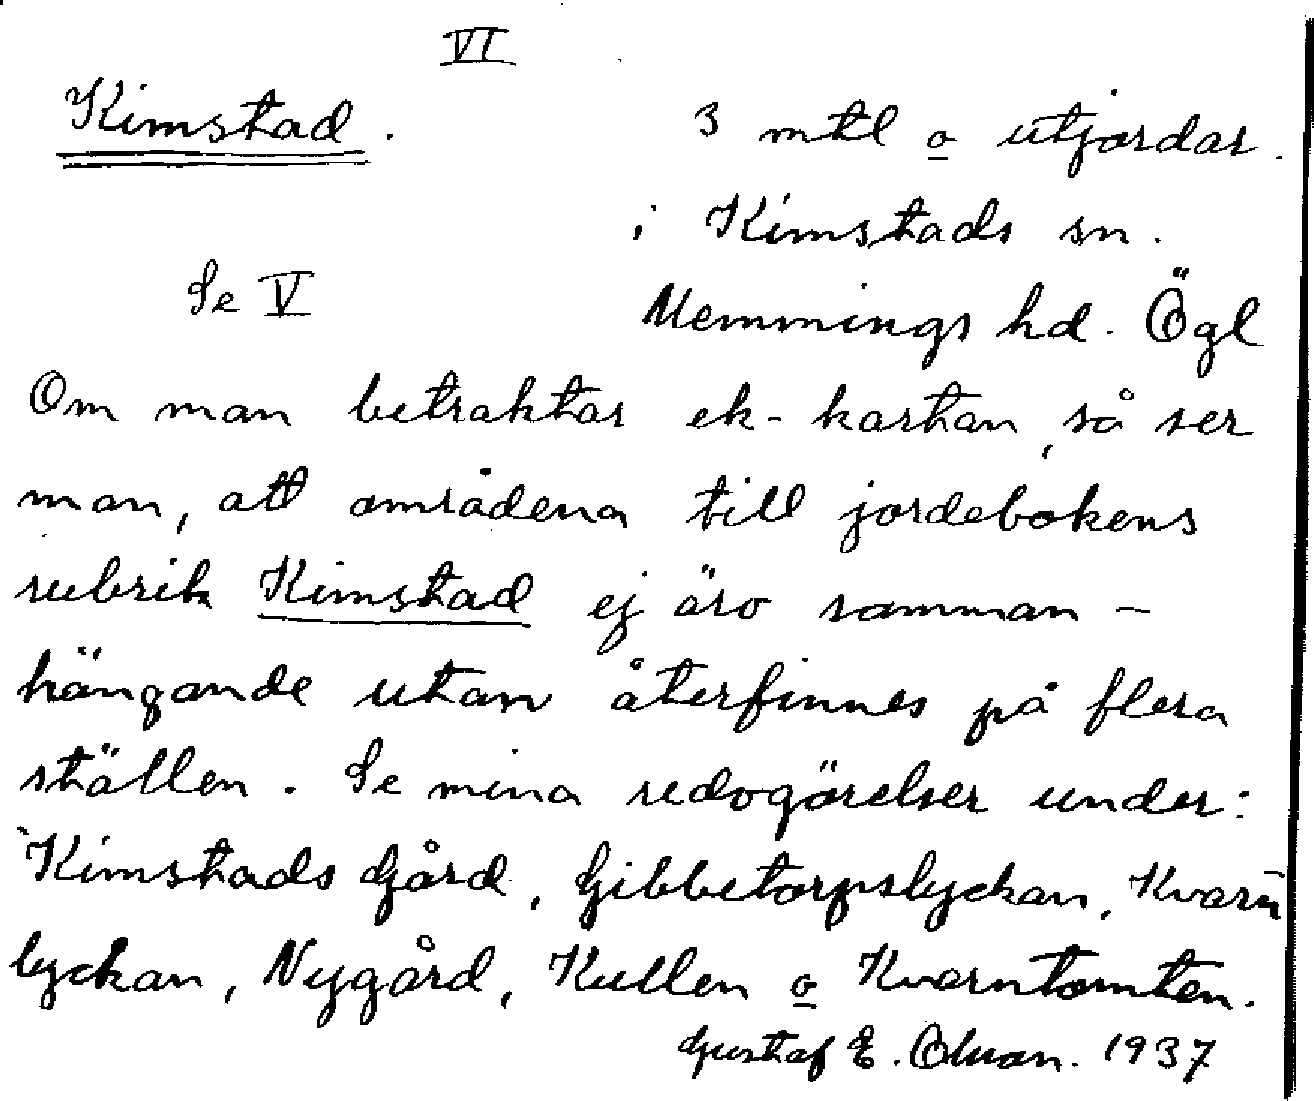 VI
Kimstad. 3 mtl o utjordar.
i Kimstads sn.
Se V Memmings hd. Ögl
Om man betraktar ek-kartan, så ser
man, att områdena till jordebokens
rubrik Kimstad ej äro samman-
hängande utan återfinnes på flera
ställen. Se mina redogörelser under:
Kimstads Gård, Gibbetorpslyckan, Kvarn
lyckan, Nygård, Kullen o Kvarntomten.
Gustaf E. Olson. 1937